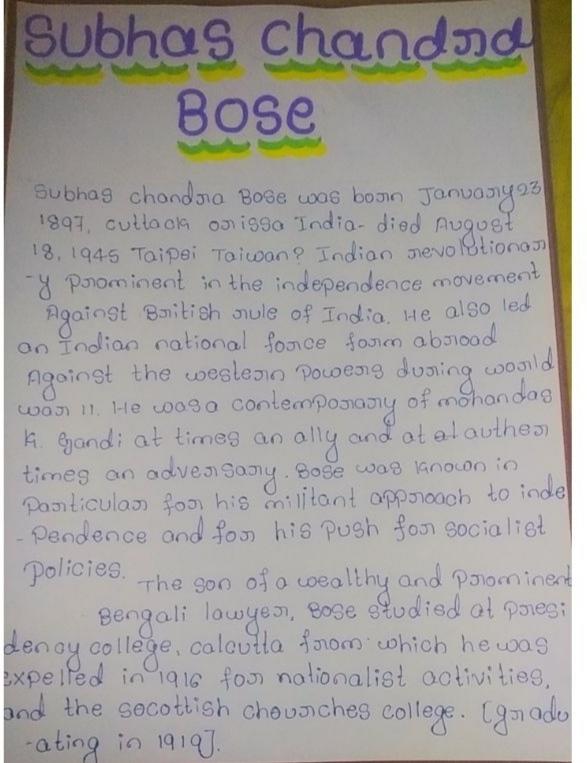 Subhas Chandra
Bose
Subhas chandra Bose was born January 23
1897, cuttack orissa India- died August
18, 1945 Taipei Taiwan? Indian revolutionar
-y prominent in the independence movement
Against British rule of India. He also led
an Indian national force form abroad
Against the western powers during world
war 11. He was a contemporary of mohandas
k. gandi at times an ally and at at auther
times an adversary. Bose was known in
Particular for his militant approach to inde
-Pendence and for his push for socialist
policies.
The son of a wealthy and prominent
Bengali lawyer, Bose studied at presi
dency college, calcutta from which he was
expelled in 1916 for nationalist activities,
and the socottish chourches college. [gradu
-ating in 1919].